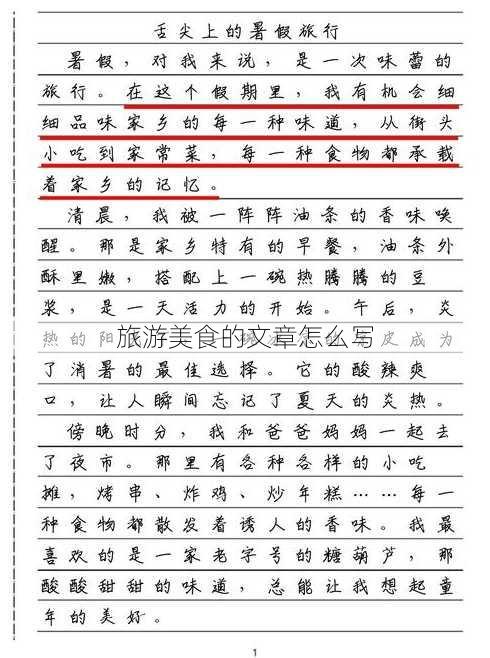 舌尖上的暑假旅行
暑假，对我来说，是一次味蕾的
旅行。在这个假期里，我有机会细
细品味家乡的每一种味道，从街头
小吃到家常菜，每一种食物都承载
着家乡的记忆。
清晨，我被一阵阵油条的香味唤
醒。那是家乡特有的早餐，油条外
酥里嫩，搭配上一碗热腾腾的豆
浆，是一天活力的开始。午后，炎
热的阳
皮成为
旅游美食的文章怎么写
了消暑的最佳选择。它的酸辣爽
口，让人瞬间忘记了夏天的炎热。
傍晚时分，我和爸爸妈妈一起去
了夜市。那里有各种各样的小吃
摊，烤串、炸鸡、炒年糕……每一
种食物都散发着诱人的香味。我最
喜欢的是一家老字号的糖葫芦，那
酸酸甜甜的味道，总能让我想起童
年的美好。
1